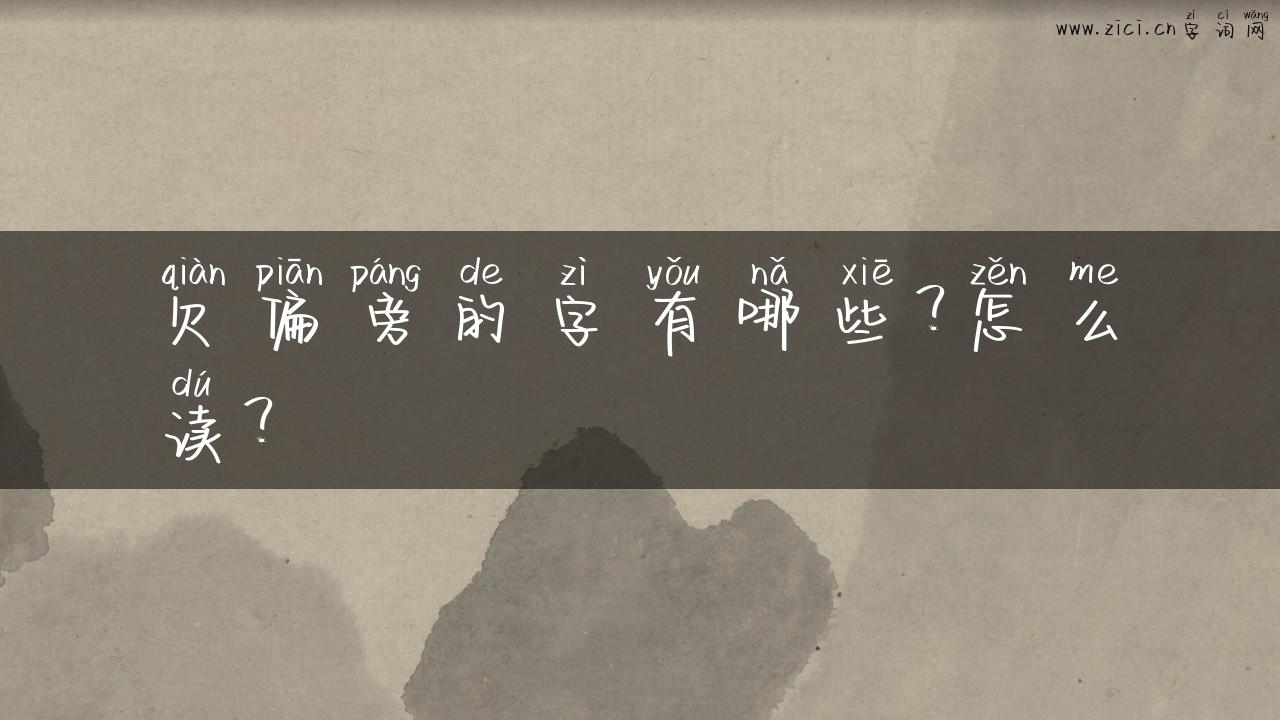 zì cí wǎng
www.zici.cn 字 词 网
qiàn piān páng de zì yǒu nǎ xiē zěn me
欠 偏 旁 的 字 有 哪 些 ? 怎 么
dú
读 ?